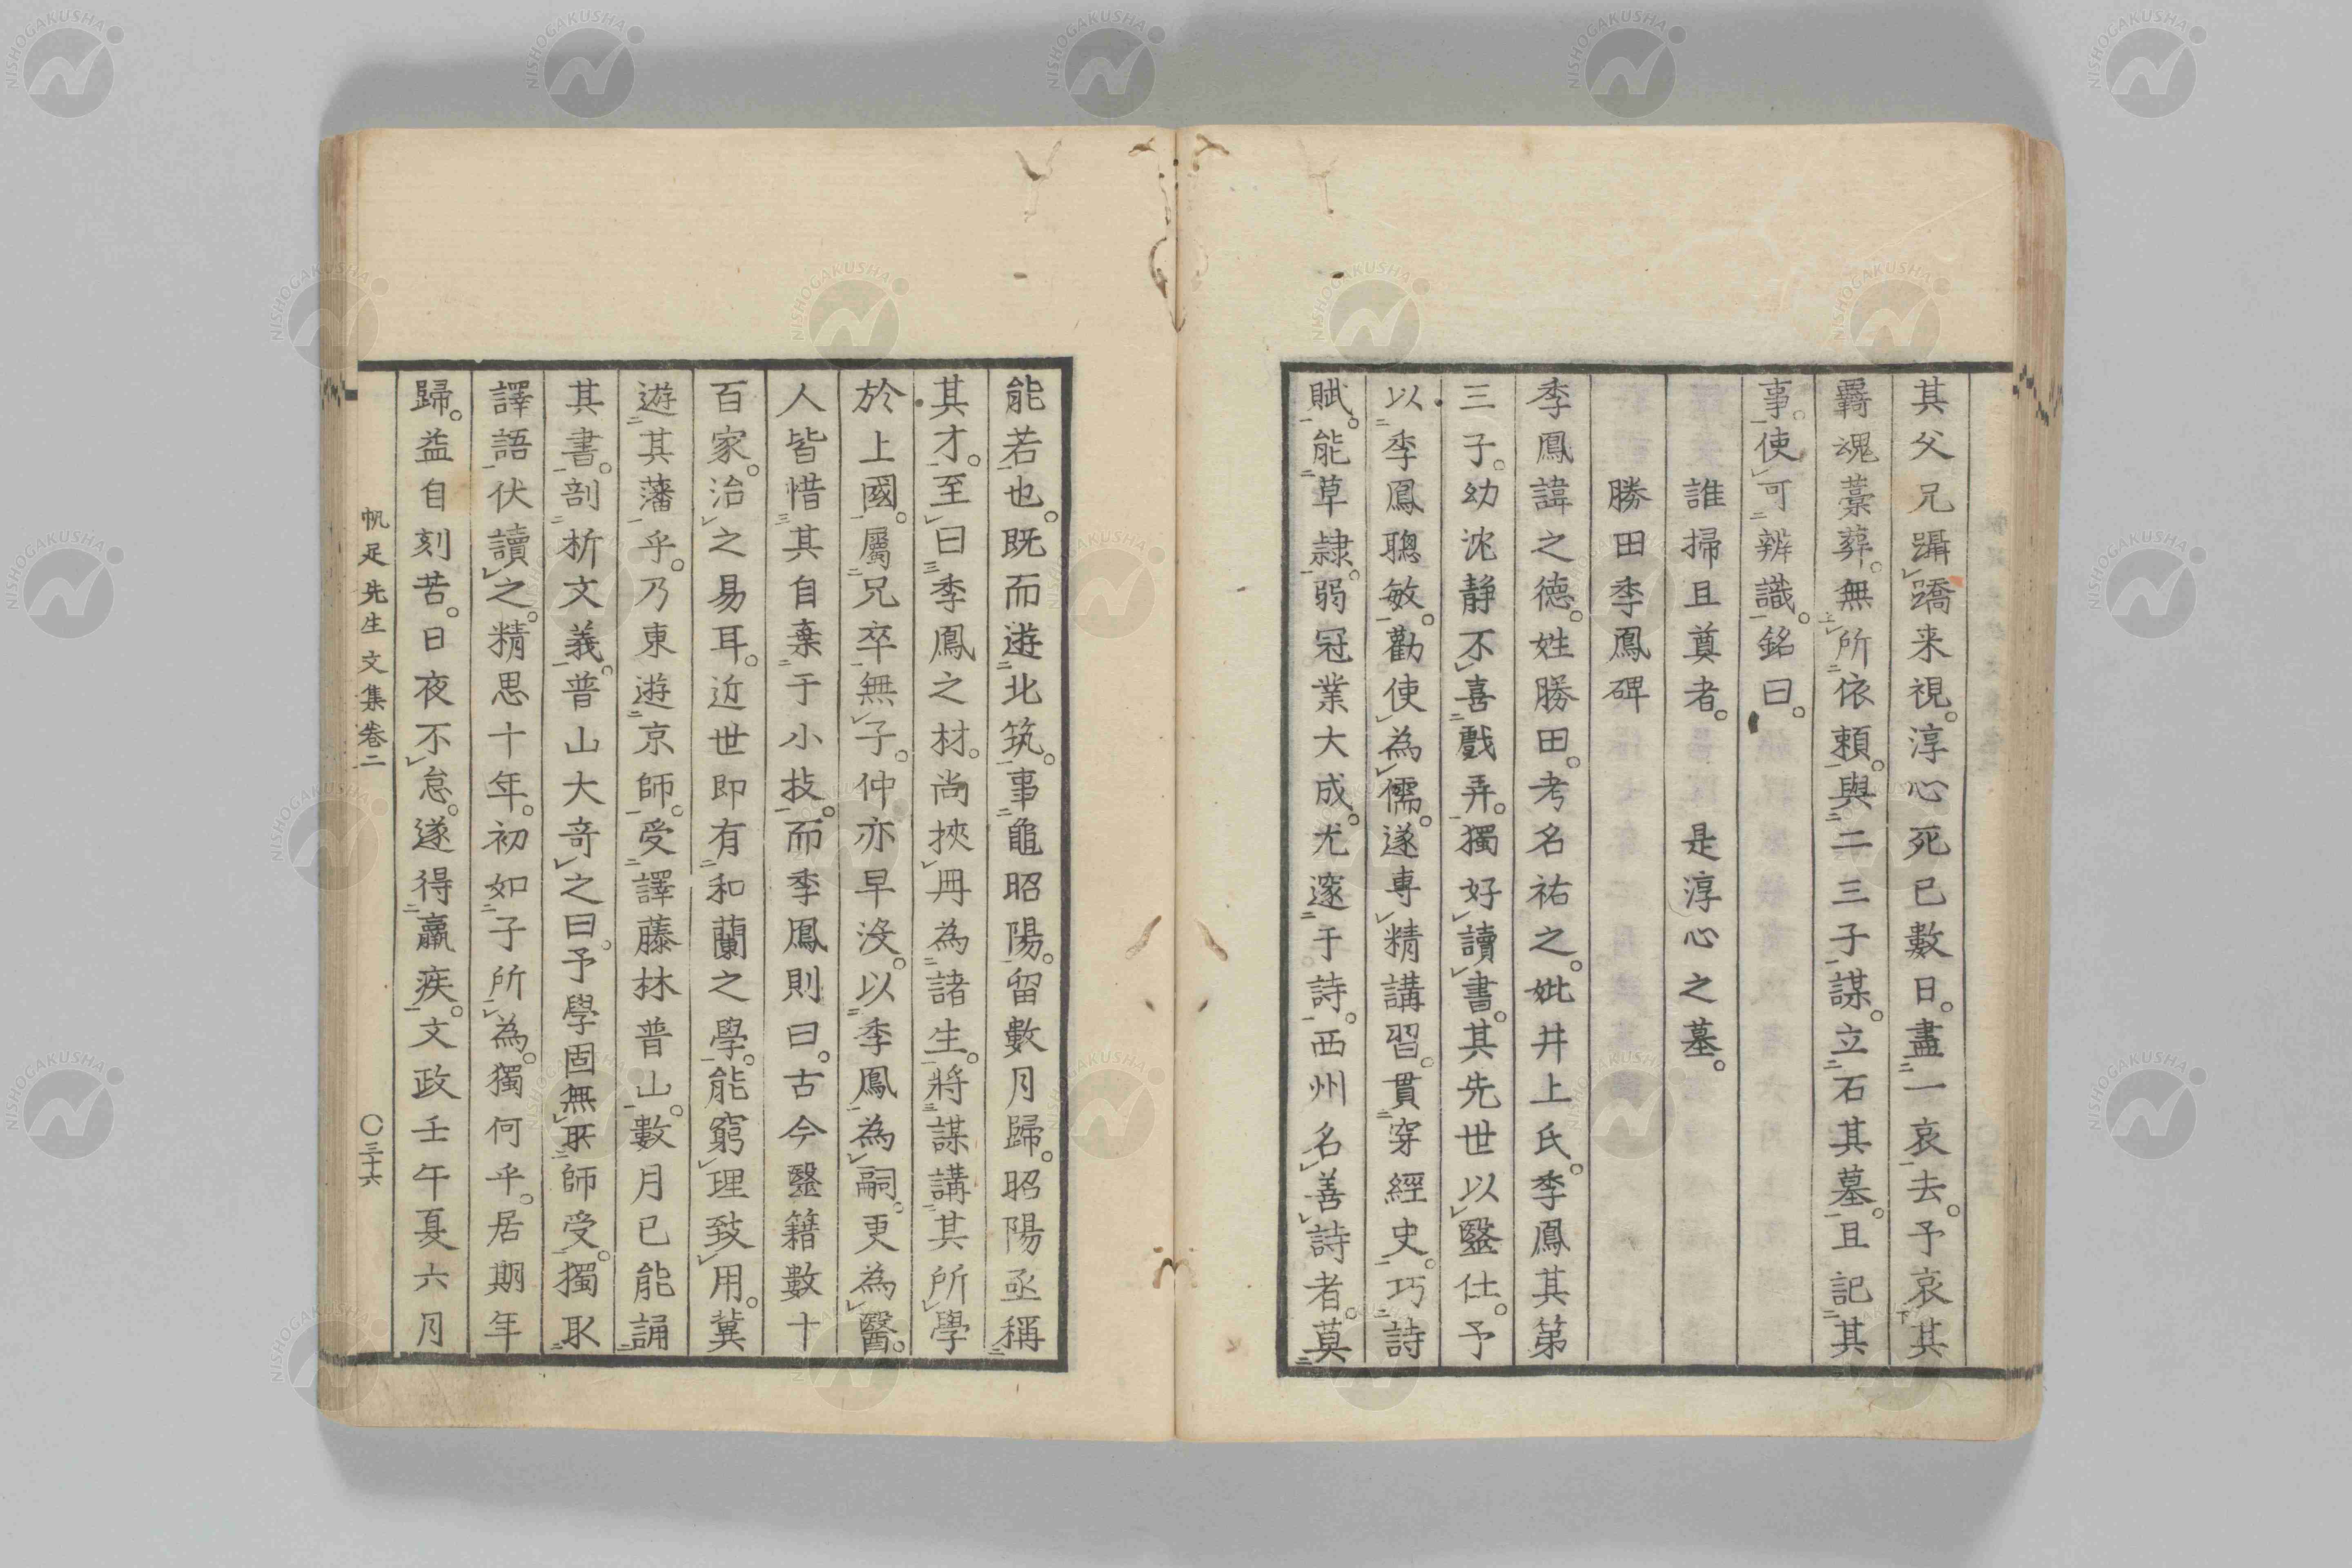 其父兄躡蹻来視。淳心死已數日。盡一哀去。予哀其
羇魂藁葬。無所依頼。與二三子謀。立石其墓。且記其
事。使可辨識。銘曰。
誰掃且奠者。 是淳心之墓。
勝田季鳳碑
季鳳諱之德。姓勝田。考名祐之。妣井上氏。季鳳其第
三子。幼沈静不喜戲弄。獨好讀書。其先世以醫仕。予
以季鳳聰敏。勸使為儒。遂專精講習。貫穿經史。巧詩
賦。能草隷。弱冠業大成。尤邃于詩。西州名善詩者。莫
能若也。既而遊北筑。事龜昭陽。留數月歸。昭陽亟稱
其才。至曰季鳳之材。尚挾冊為諸生。將謀講其所學
於上國。屬兄卒無子。仲亦早没。以季鳳為嗣。更為醫。
人皆惜其自棄于小技。而季鳳則曰。古今醫籍數十
百家。治之易耳。近世即有和蘭之學。能窮理致用。冀
遊其藩乎。乃東遊京師。受譯藤林普山。數月已能誦
其書。剖析文義。普山大奇之曰。予學固無所師受。獨取
譯語伏讀之。精思十年。初如子所為。獨何乎。居期年
歸。益自刻苦。日夜不怠。遂得羸疾。文政壬午夏六月
帆足先生文集卷二
〇三十六
NISHOGAKUSHA